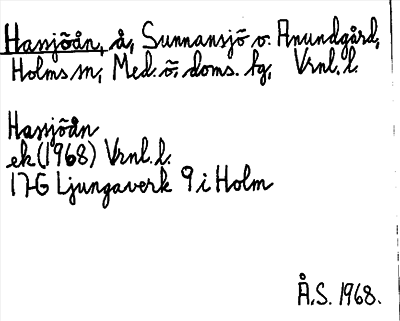 Hassjöån, å, Sunnansjö o. Anundgård,
Holms sn, Med. ö. doms. tg, Vrnl. l.
Hassjöån
ek (1968) Vrnl. l.
17G Ljungaverk 9 i Holm
Å.S. 1968.